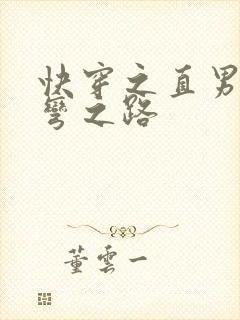 快穿之直男
彎之路
董雲一